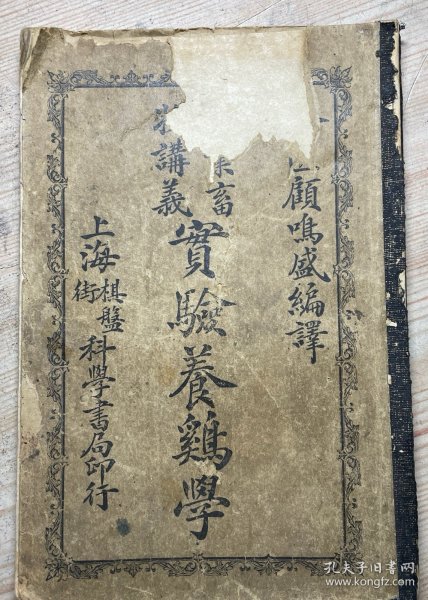 顧鳴盛編譯
畜
講義
實驗養鷄學
上海棋盤街科學書局印行
孔夫子旧书网
www.kongfz.com